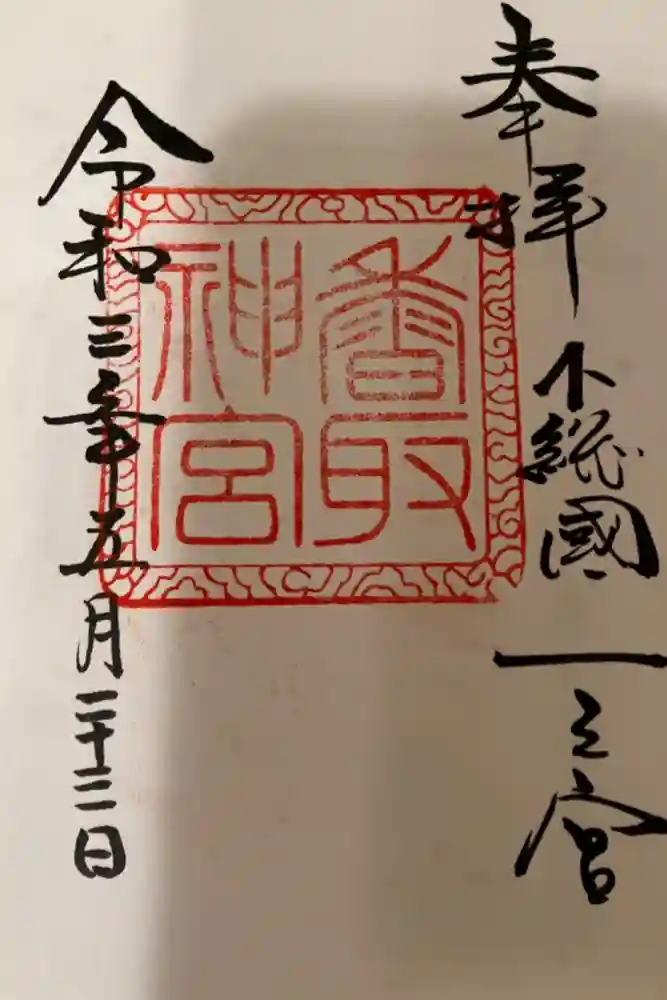 奉拝
下総國
一之宮
香取
神宮
令和三年五月二十二日